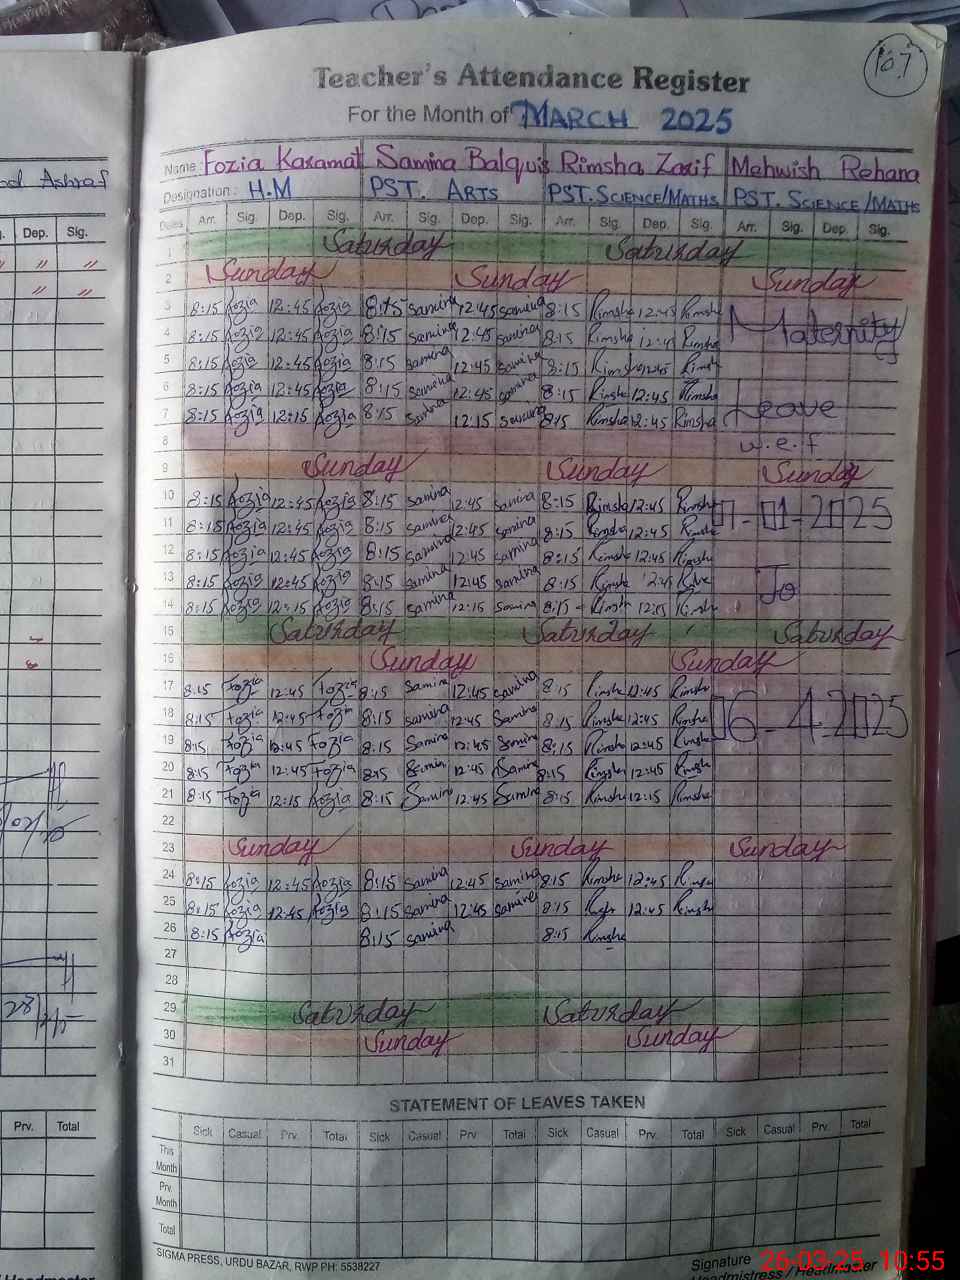 107
Teacher's Attendance Register
For the Month of MARCH 2025
Name: Fozia Karamat Samina Balquis Rimsha Zarif Mehwish Rehana
Designation: H.M PST. ARTS PST. SCIENCE/MATHS PST. SCIENCE/MATHS
Dates Arr. Sig. Dep. Sig. Arr. Sig. Dep. Sig. Arr. Sig. Dep. Sig. Arr. Sig. Dep. Sig.
1 Saturday Saturday
2 Sunday Sunday Sunday
3 8:15 Fozia 12:45 Fozia 8:15 Samina 12:45 Samina 8:15 Rimsha 12:45 Rimsha Maternity
4 8:15 Fozia 12:45 Fozia 8:15 Samina 12:45 Samina 8:15 Rimsha 12:45 Rimsha
5 8:15 Fozia 12:45 Fozia 8:15 Samina 12:45 Samina 8:15 Rimsha 12:45 Rimsha
6 8:15 Fozia 12:45 Fozia 8:15 Samina 12:45 Samina 8:15 Rimsha 12:45 Rimsha
7 8:15 Fozia 12:15 Fozia 8:15 Samina 12:15 Samina 8:15 Rimsha 12:45 Rimsha Leave
8 w.e.f
9 Sunday Sunday Sunday
10 8:15 Fozia 12:45 Fozia 8:15 Samina 12:45 Samina 8:15 Rimsha 12:45 Rimsha 07-01-2025
11 8:15 Fozia 12:45 Fozia 8:15 Samina 12:45 Samina 8:15 Rimsha 12:45 Rimsha
12 8:15 Fozia 12:45 Fozia 8:15 Samina 12:45 Samina 8:15 Rimsha 12:45 Rimsha
13 8:15 Fozia 12:45 Fozia 8:15 Samina 12:45 Samina 8:15 Rimsha 12:45 Rimsha To
14 8:15 Fozia 12:15 Fozia 8:15 Samina 12:15 Samina 8:15 Rimsha 12:15 Rimsha
15 Saturday Saturday Saturday
16 Sunday Sunday
17 8:15 Fozia 12:45 Fozia 8:15 Samina 12:45 Samina 8:15 Rimsha 12:45 Rimsha
18 8:15 Fozia 12:45 Fozia 8:15 Samina 12:45 Samina 8:15 Rimsha 12:45 Rimsha 06-4-2025
19 8:15 Fozia 12:45 Fozia 8:15 Samina 12:45 Samina 8:15 Rimsha 12:45 Rimsha
20 8:15 Fozia 12:45 Fozia 8:15 Samina 12:45 Samina 8:15 Rimsha 12:45 Rimsha
21 8:15 Fozia 12:15 Fozia 8:15 Samina 12:45 Samina 8:15 Rimsha 12:15 Rimsha
22
23 Sunday Sunday Sunday
24 8:15 Fozia 12:45 Fozia 8:15 Samina 12:45 Samina 8:15 Rimsha 12:45 Rimsha
25 8:15 Fozia 12:45 Fozia 8:15 Samina 12:45 Samina 8:15 Rimsha 12:45 Rimsha
26 8:15 Fozia 8:15 Samina 8:15 Rimsha
27
28
29 Saturday Saturday
30 Sunday Sunday
31
STATEMENT OF LEAVES TAKEN
Sick Casual Prv. Total Sick Casual Prv. Total Sick Casual Prv. Total Sick Casual Prv. Total
This Month
Prv. Month
Total
SIGMA PRESS, URDU BAZAR, RWP PH: 5538227
Signature
Headmistress / Headmaster
26-03-25 10:55
Ashraf
Dep. Sig.
Prv. Total